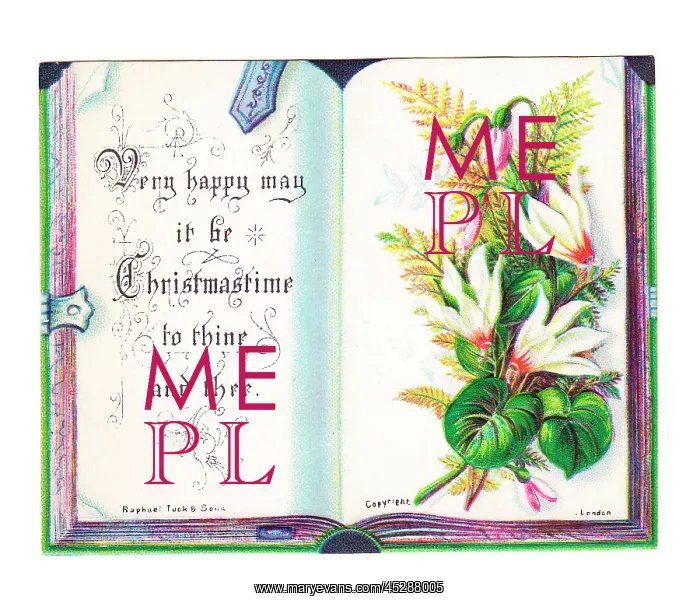 Very happy may
it be
Christmastime
to thine
and thee.
ME
PL
Raphael Tuck & Sons
ME
PL
Copyright
London
www.maryevans.com/45288005